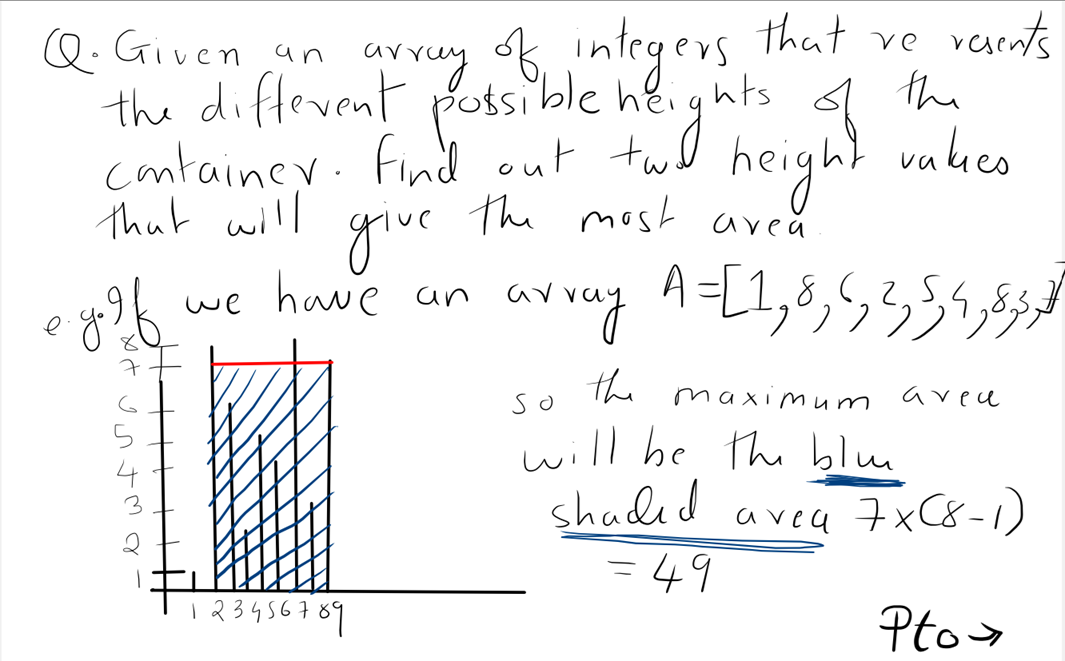 Q. Given an array of integers that re resents
the different possible heights of the
container. Find out two height values
that will give the most area.
e.g. If we have an array A=[1,8,6,2,5,4,8,3,7]
8
7
6
5
4
3
2
1
1 2 3 4 5 6 7 8 9
so the maximum area
will be the blue
shaded area 7x(8-1)
= 49
Pto→